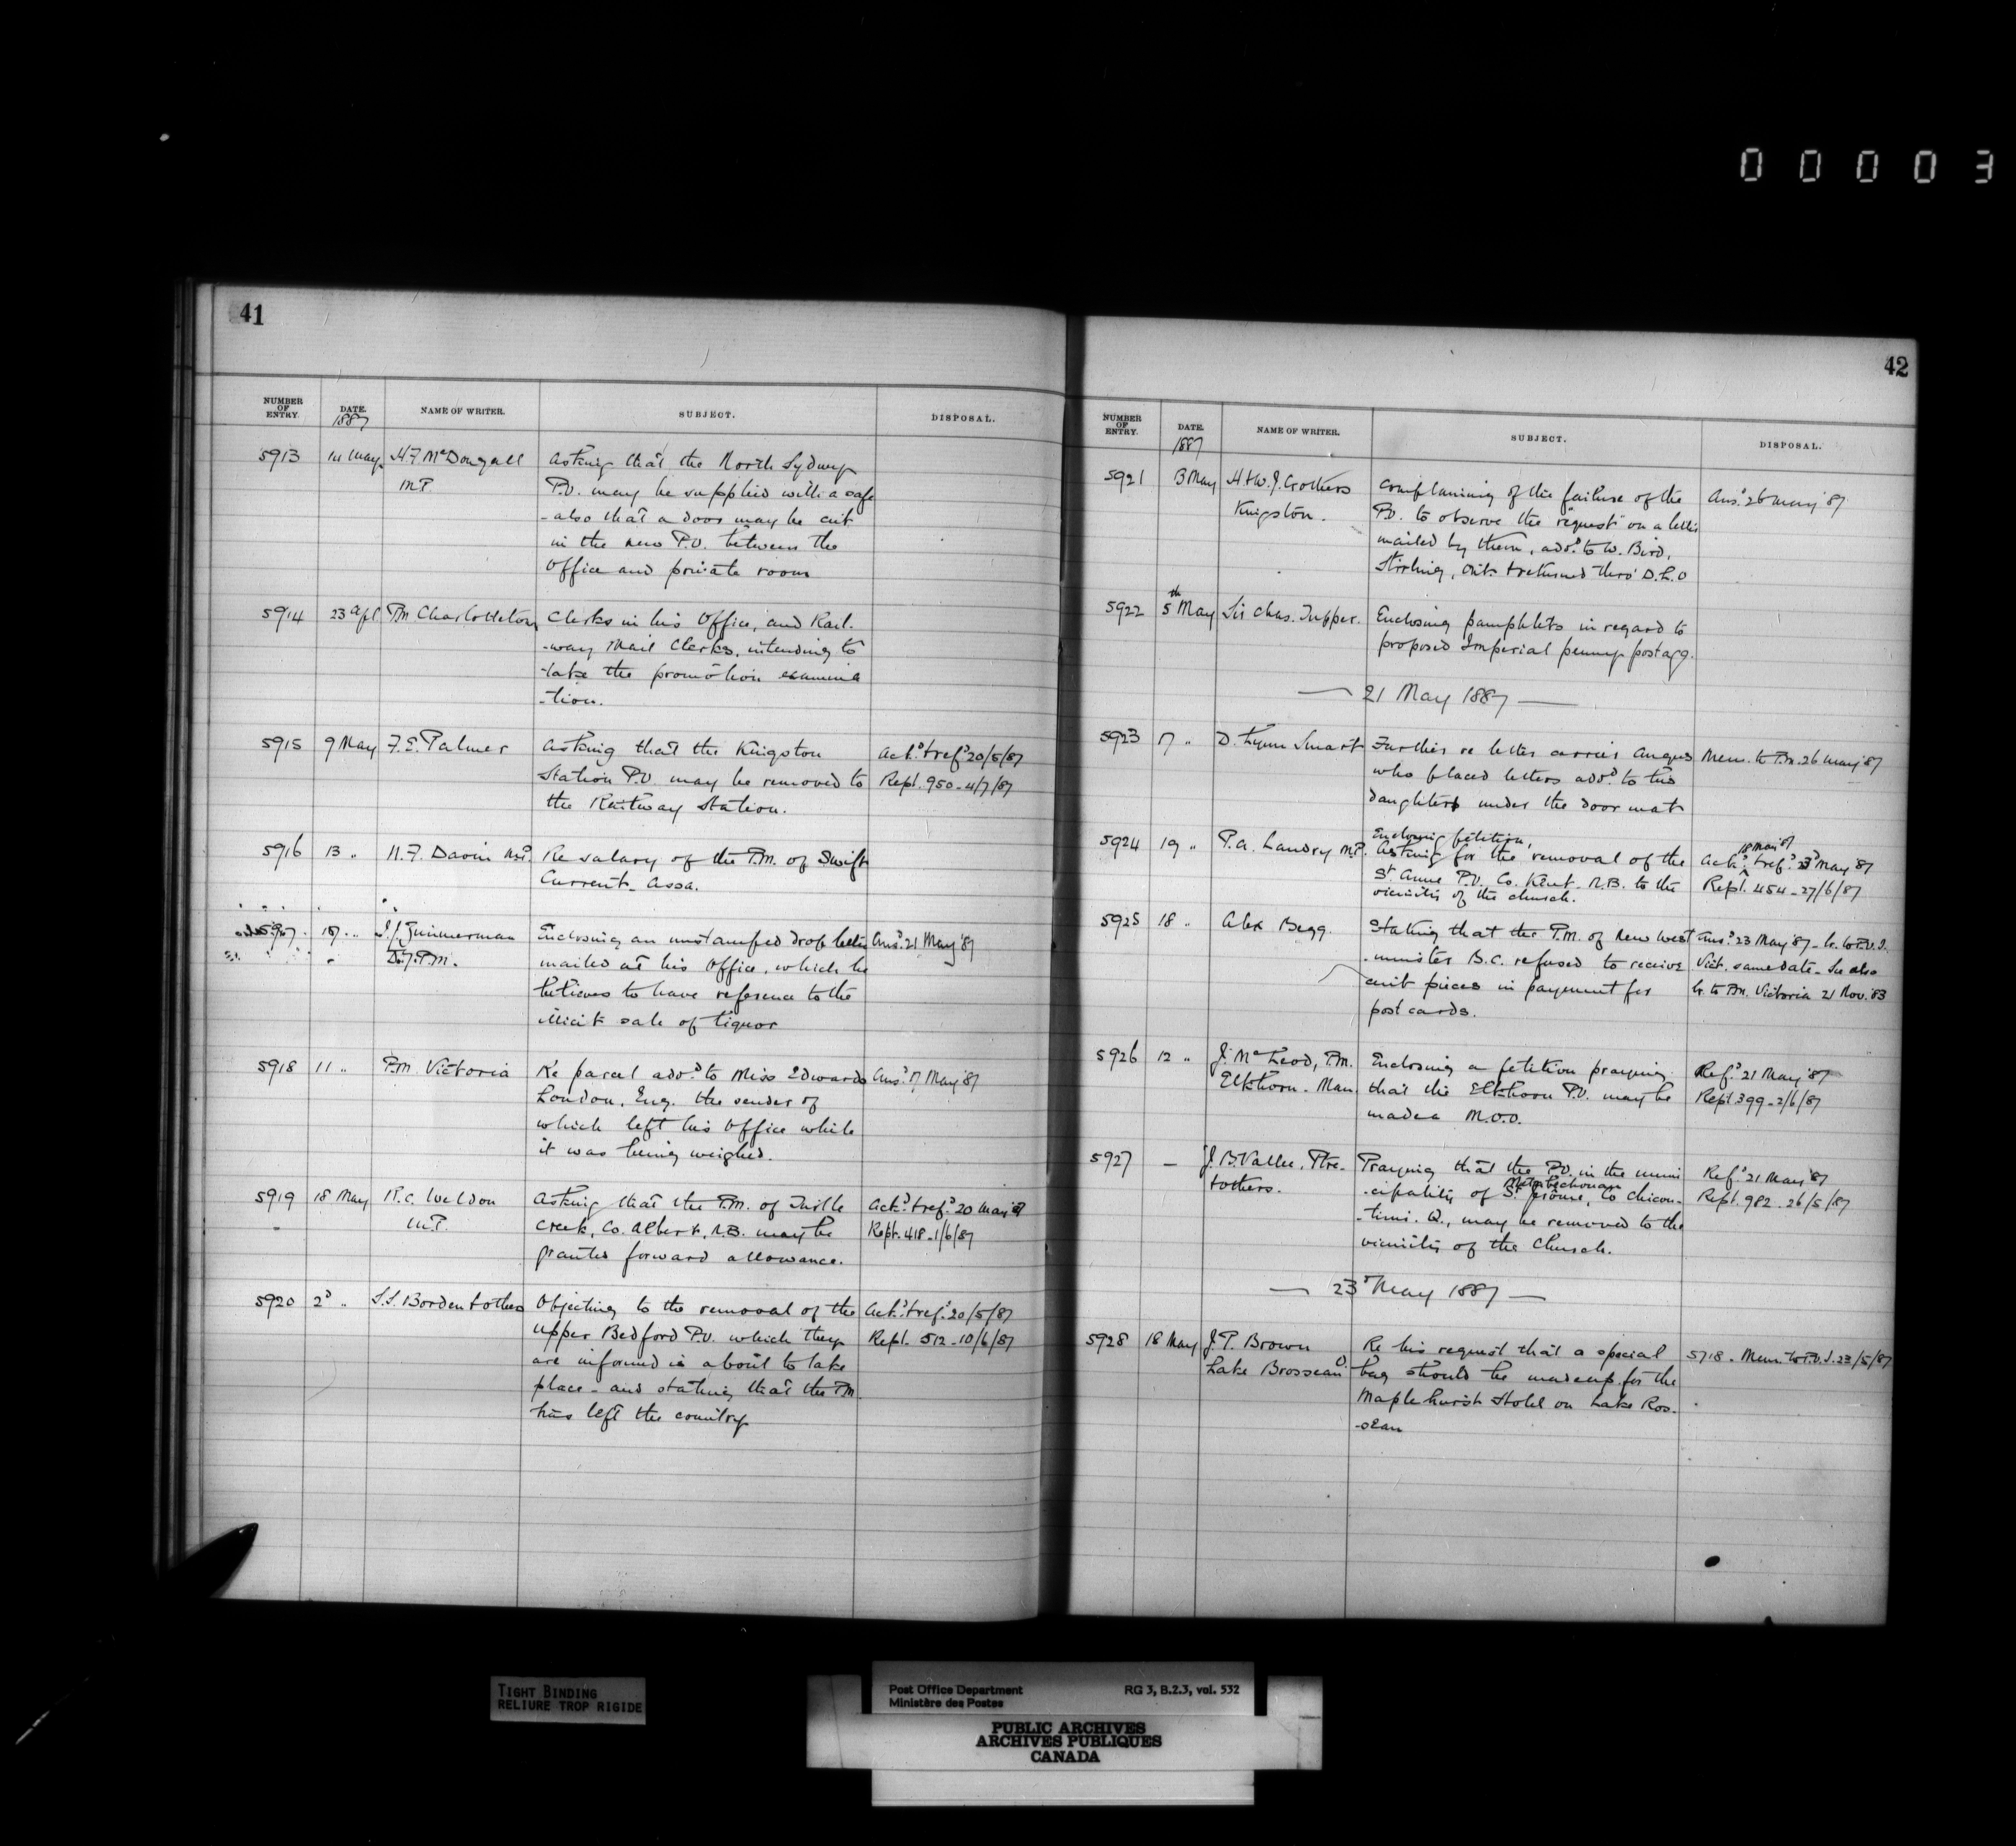 00003
41
NUMBER OF ENTRY. DATE. 1887 NAME OF WRITER. SUBJECT. DISPOSAL.
5913 14 May H F McDougall Asking that the North Sydney
M.P. P.O. may be supplied with a safe
- also that a door may be cut
in the new P.O. between the
Office and private room
5914 23 Apl P.M. Charlottetown Clerks in his Office, and Rail-
-way Mail Clerks, intending to
-take the promotion examina
-tion.
5915 9 May F. E. Palmer Asking that the Kingston Ackd. & refd. 20/5/87
Station P.O. may be removed to Rept. 950 - 4/7/87
the Railway Station.
5916 13 " N. F. Davin M.P. Re salary of the P.M. of Swift
Current - Assa.
5917 17 " Zimmerman Enclosing an unstamped drop letter Ansd. 21 May '87
P.M. mailed at his Office, which he
believes to have reference to the
illicit sale of liquor
5918 11 " P.M. Victoria Re parcel addd. to Miss Edwards Ansd. 17 May '87
London, Eng. the sender of
which left his Office while
it was being weighed.
5919 18 May R. C. Weldon Asking that the P.M. of Turtle Ackd. & refd. 20 May '87
M.P. Creek, Co. Albert, N.B. may be Rept. 418 - 1/6/87
granted forward allowance.
5920 2d " S.S. Borden & others Objecting to the removal of the Ackd. & refd. 20/5/87
Upper Bedford P.O. which they Rept. 512 - 10/6/87
are informed is about to take
place - and stating that the P.M.
has left the country
42
NUMBER OF ENTRY. DATE. 1887 NAME OF WRITER. SUBJECT. DISPOSAL.
5921 13 May H & W. J. Crothers Complaining of the failure of the Ansd. 26 May '87
Kingston. P.O. to observe the "request" on a letter
mailed by them, addd. to W. Bird,
Stirling, Ont. & returned thro' D.L.O
5922 5th May Sir Chas. Tupper. Enclosing pamphlets in regard to
proposed Imperial penny postage.
— 21 May 1887 —
5923 17 " D. Lynn Smart Further re letter carrier Angus Mem. to P.M. 26 May '87
who placed letters addd. to his
daughters under the door mat
5924 19 " P. A. Landry M.P. Enclosing petition, 18 May '87
Asking for the removal of the Ackd. & refd. 23d May '87
St. Anne P.O. Co. Kent. N.B. to the Rept. 454 - 27/6/87
vicinity of the church.
5925 18 " Alex Begg. Stating that the P.M. of New West Ansd. 23 May '87 - Lr. to P.O.I.
-minster B.C. refused to receive Vict. same date - See also
cent pieces in payment for Lr. to P.M. Victoria 21 Nov. '83
post cards.
5926 12 " J. McLeod, P.M. Enclosing a petition praying Refd. 21 May '87
Elkhorn - Man. that the Elkhorn P.O. may be Rept 399 - 2/6/87
made a M.O.O.
5927 — J. B. Vallee, Ptre. Praying that the P.O. in the muni Refd. 21 May '87
& others. Metabechouan
-cipality of St. Jerome, Co Chicou- Rept. 982 - 26/5/87
-timi. Q., may be removed to the
vicinity of the Church.
— 23d May 1887 —
5928 18 May J. P. Brown Re his request that a special 5718 - Mem. to P.O.I. 23/5/87
Lake Brosseau O. bag should be made up for the
Maplehurst Hotel on Lake Ros-
-seau
TIGHT BINDING
RELIURE TROP RIGIDE
Post Office Department RG 3, B.2.3, vol. 532
Ministère des Postes
PUBLIC ARCHIVES
ARCHIVES PUBLIQUES
CANADA